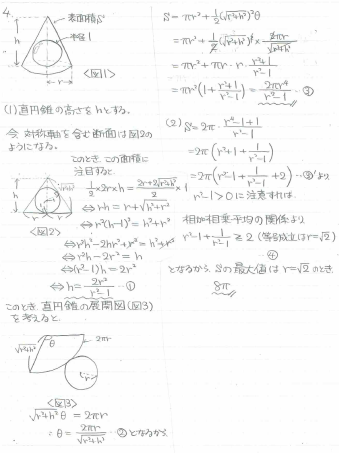 4.
表面積S
半径1
h
r
<図1>
(1) 直円錐の高さをhとする。
今 対称軸を含む断面は図2の
ようになる。
このとき、この面積に
注目すると
1/2・2r×h = (2r+2√(r²+h²))/2 × 1
⇔ r・h = r+√(h²+r²)
<図2>
⇔ r²(h-1)² = h²+r²
⇔ r²h²-2hr²+r² = h²+r²
⇔ r²h-2r² = h
⇔ (r²-1)h = 2r²
⇔ h = 2r²/(r²-1) …①
このとき 直円錐の展開図(図3)
を考えると
√(r²+h²)
θ
2πr
r
<図3>
√(r²+h²) θ = 2πr
∴ θ = 2πr/√(r²+h²) …② となるから
S = πr²+1/2(√(r²+h²))²θ
= πr²+1/2(√(r²+h²))² × 2πr/√(r²+h²)
= πr²+πr・r・(r²+1)/(r²-1)
= πr²(1+(r²+1)/(r²-1)) = 2πr⁴/(r²-1) …③
(2) S = 2π・(r⁴-1+1)/(r²-1)
= 2π(r²+1+1/(r²-1))
= 2π(r²-1+1/(r²-1)+2) …③'より
r²-1>0 に注意すれば、
相加相乗平均の関係より
r²-1+1/(r²-1) ≧ 2 (等号成立はr=√2)
④
となるから Sの最大値は r=√2 のとき
8π